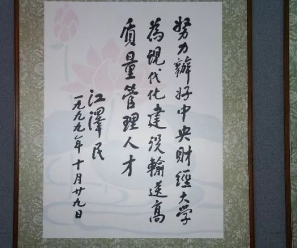 努力辦好中央財經大學
為現代化建設輸送高
質量管理人才
江澤民
一九九九年十月廿九日